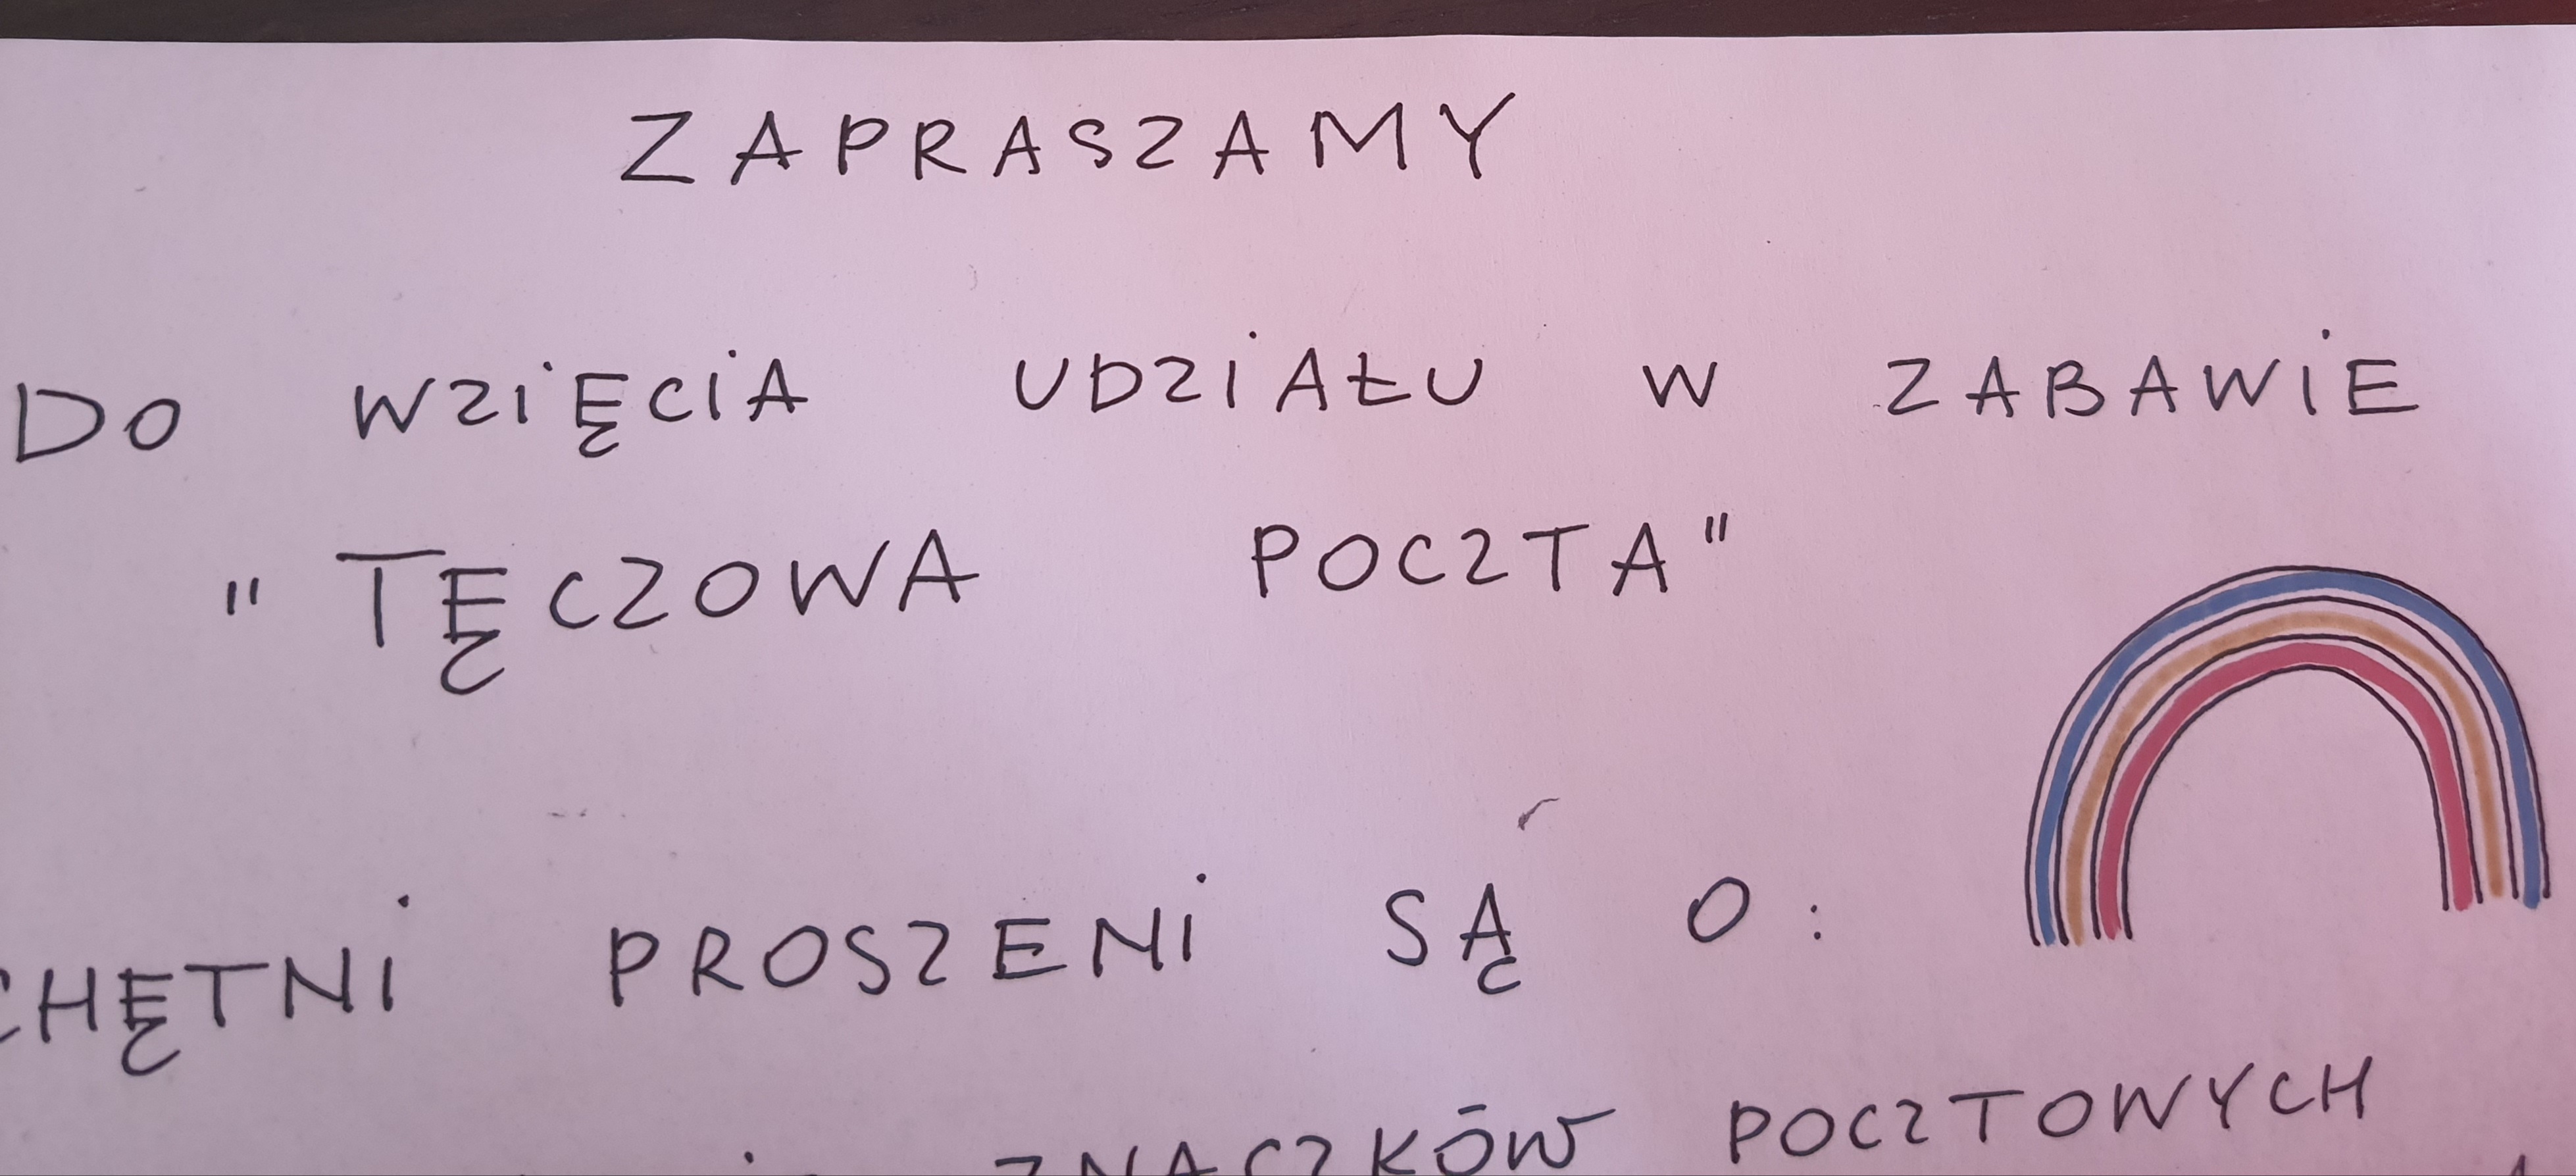 ZAPRASZAMY
DO WZIĘCIA UDZIAŁU W ZABAWIE
"TĘCZOWA POCZTA"
CHĘTNI PROSZENI SĄ O:
ZNACZKÓW POCZTOWYCH